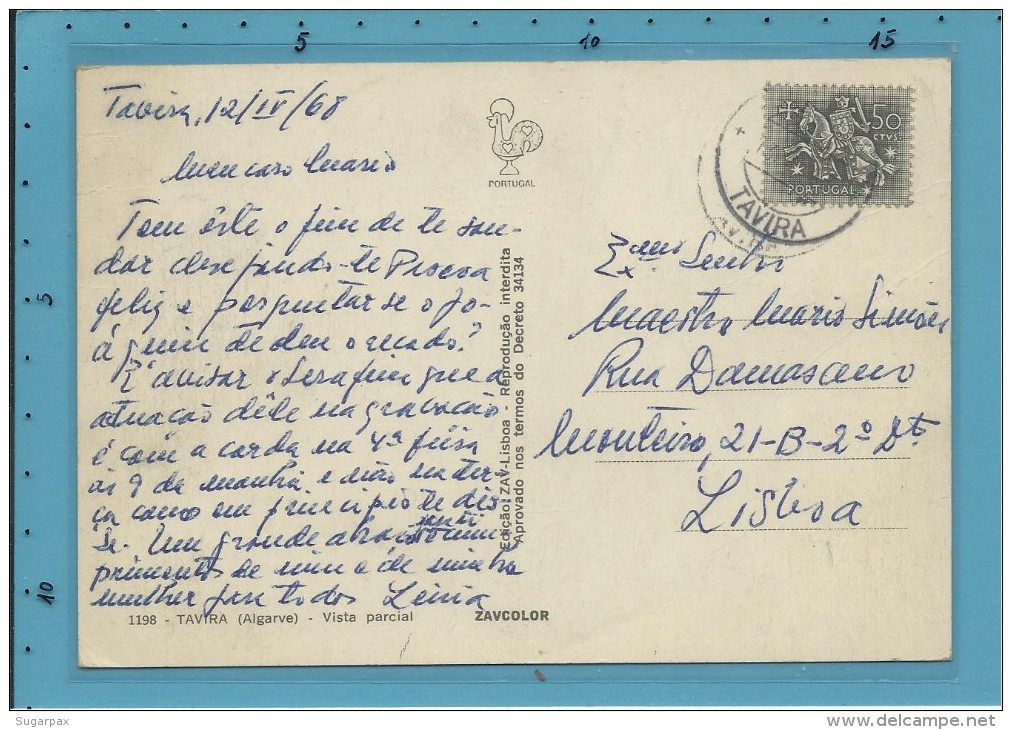 5
10
15
5
10
Tavira, 12/IV/68
Meu caro Mario
PORTUGAL
50
CTVS.
PORTUGAL
TAVIRA
Tem êste o fim de te sau-
dar desejando-te Pascoa
feliz e perguntar se o Jo-
á quem te deu o recado?
É avisar o Serafim que a
atuação dêle na gravação
é com a corda na 4ª feira
ás 9 da manhã e não na ter-
ça como em principio te dis-
se. Um grande abraço
primentos de mim e de minha
mulher para todos
Exmo Senhor
Maestro Mario Simões
Rua Damasceno
Monteiro, 21-B-2º Dt.
Lisboa
Edição: ZAV-Lisboa - Reprodução interdita
Aprovado nos termos do Decreto 34134
1198 - TAVIRA (Algarve) - Vista parcial
ZAVCOLOR
Sugarpax
www.delcampe.net